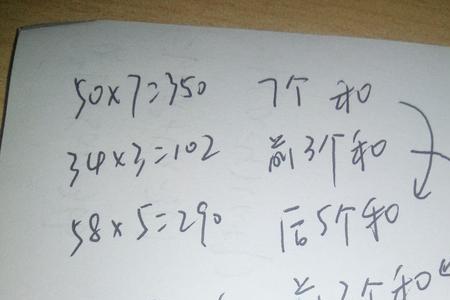 50×7=350 7个和
34×3=102 前3个和
58×5=290 后5个和
2个和